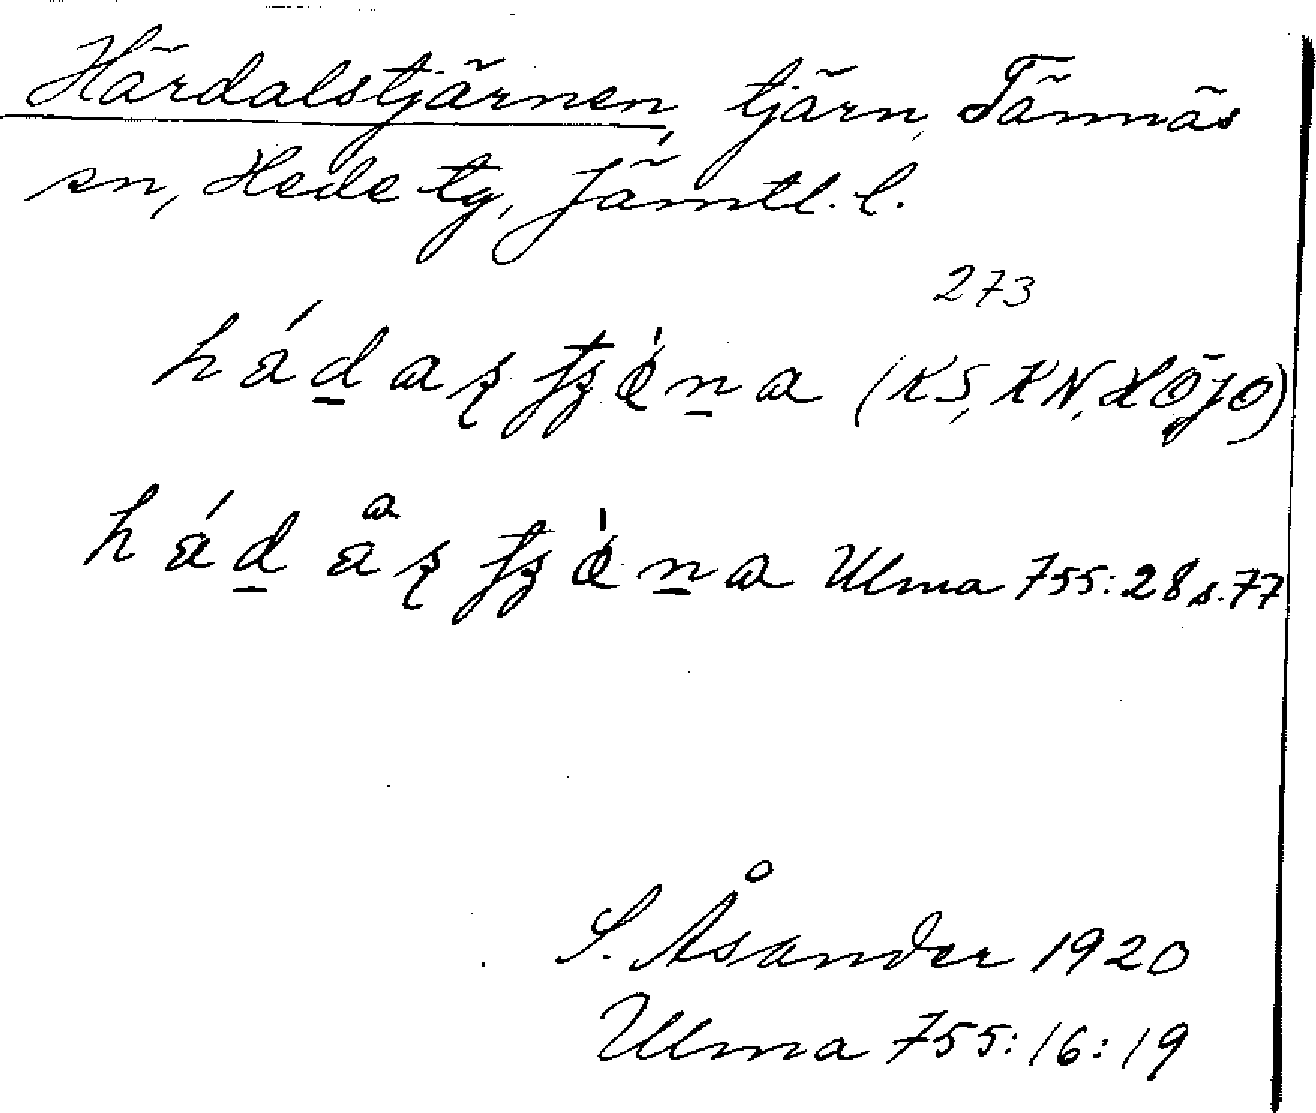 Härdalstjärnen, tjärn, Tännäs
sn, Hede tg, Jämtl. l.
273
(KS, KN, HÖJO)
Ulma 755:28 s. 77
S. Åsander 1920
Ulma 755:16:19